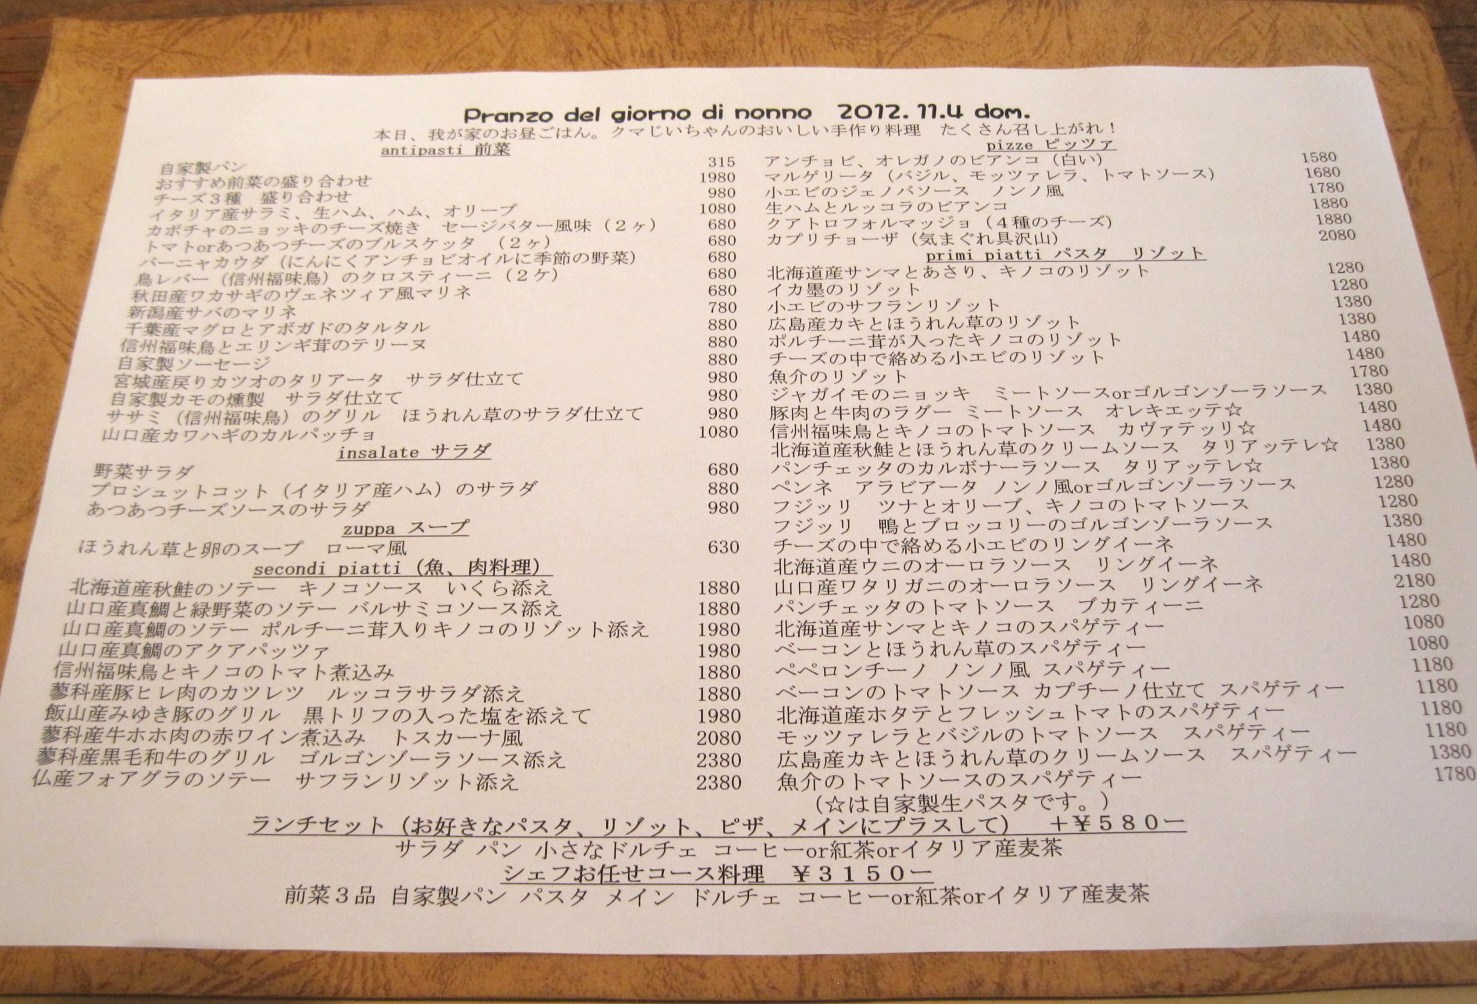 Pranzo del giorno di nonno 2012.11.4 dom.
本日、我が家のお昼ごはん。クマじいちゃんのおいしい手作り料理　たくさん召し上がれ！
antipasti 前菜
自家製パン 315
おすすめ前菜の盛り合わせ 1980
チーズ３種　盛り合わせ 980
イタリア産サラミ、生ハム、ハム、オリーブ 1080
カボチャのニョッキのチーズ焼き　セージバター風味（２ヶ） 680
トマトorあつあつチーズのブルスケッタ　（２ヶ） 680
バーニャカウダ（にんにくアンチョビオイルに季節の野菜） 680
鳥レバー（信州福味鳥）のクロスティーニ（２ケ） 680
秋田産ワカサギのヴェネツィア風マリネ 680
新潟産サバのマリネ 780
千葉産マグロとアボガドのタルタル 880
信州福味鳥とエリンギ茸のテリーヌ 880
自家製ソーセージ 880
宮城産戻りカツオのタリアータ　サラダ仕立て 980
自家製カモの燻製　サラダ仕立て 980
ササミ（信州福味鳥）のグリル　ほうれん草のサラダ仕立て 980
山口産カワハギのカルパッチョ 1080
insalate サラダ
野菜サラダ 680
プロシュットコット（イタリア産ハム）のサラダ 880
あつあつチーズソースのサラダ 980
zuppa スープ
ほうれん草と卵のスープ　ローマ風 630
secondi piatti（魚、肉料理）
北海道産秋鮭のソテー　キノコソース　いくら添え 1880
山口産真鯛と緑野菜のソテー バルサミコソース添え 1880
山口産真鯛のソテー ポルチーニ茸入りキノコのリゾット添え 1980
山口産真鯛のアクアパッツァ 1980
信州福味鳥とキノコのトマト煮込み 1880
蓼科産豚ヒレ肉のカツレツ　ルッコラサラダ添え 1880
飯山産みゆき豚のグリル　黒トリフの入った塩を添えて 1980
蓼科産牛ホホ肉の赤ワイン煮込み　トスカーナ風 2080
蓼科産黒毛和牛のグリル　ゴルゴンゾーラソース添え 2380
仏産フォアグラのソテー　サフランリゾット添え 2380
pizze ピッツァ
アンチョビ、オレガノのビアンコ（白い） 1580
マルゲリータ（バジル、モッツァレラ、トマトソース） 1680
小エビのジェノバソース　ノンノ風 1780
生ハムとルッコラのビアンコ 1880
クアトロフォルマッジョ（４種のチーズ） 1880
カプリチョーザ（気まぐれ具沢山） 2080
primi piatti パスタ　リゾット
北海道産サンマとあさり、キノコのリゾット 1280
イカ墨のリゾット 1280
小エビのサフランリゾット 1380
広島産カキとほうれん草のリゾット 1380
ポルチーニ茸が入ったキノコのリゾット 1480
チーズの中で絡める小エビのリゾット 1480
魚介のリゾット 1780
ジャガイモのニョッキ　ミートソースorゴルゴンゾーラソース 1380
豚肉と牛肉のラグー ミートソース　オレキエッテ☆ 1480
信州福味鳥とキノコのトマトソース　カヴァテッリ☆ 1480
北海道産秋鮭とほうれん草のクリームソース　タリアッテレ☆ 1380
パンチェッタのカルボナーラソース　タリアッテレ☆ 1380
ペンネ　アラビアータ ノンノ風orゴルゴンゾーラソース 1280
フジッリ　ツナとオリーブ、キノコのトマトソース 1280
フジッリ　鴨とブロッコリーのゴルゴンゾーラソース 1380
チーズの中で絡める小エビのリングイーネ 1480
北海道産ウニのオーロラソース　リングイーネ 1480
山口産ワタリガニのオーロラソース　リングイーネ 2180
パンチェッタのトマトソース　ブカティーニ 1280
北海道産サンマとキノコのスパゲティー 1080
ベーコンとほうれん草のスパゲティー 1080
ペペロンチーノ ノンノ風 スパゲティー 1180
ベーコンのトマトソース カプチーノ仕立て スパゲティー 1180
北海道産ホタテとフレッシュトマトのスパゲティー 1180
モッツァレラとバジルのトマトソース　スパゲティー 1180
広島産カキとほうれん草のクリームソース　スパゲティー 1380
魚介のトマトソースのスパゲティー 1780
（☆は自家製生パスタです。）
ランチセット（お好きなパスタ、リゾット、ピザ、メインにプラスして）　＋￥５８０ー
サラダ パン 小さなドルチェ コーヒーor紅茶orイタリア産麦茶
シェフお任せコース料理　￥３１５０ー
前菜３品 自家製パン パスタ メイン ドルチェ コーヒーor紅茶orイタリア産麦茶